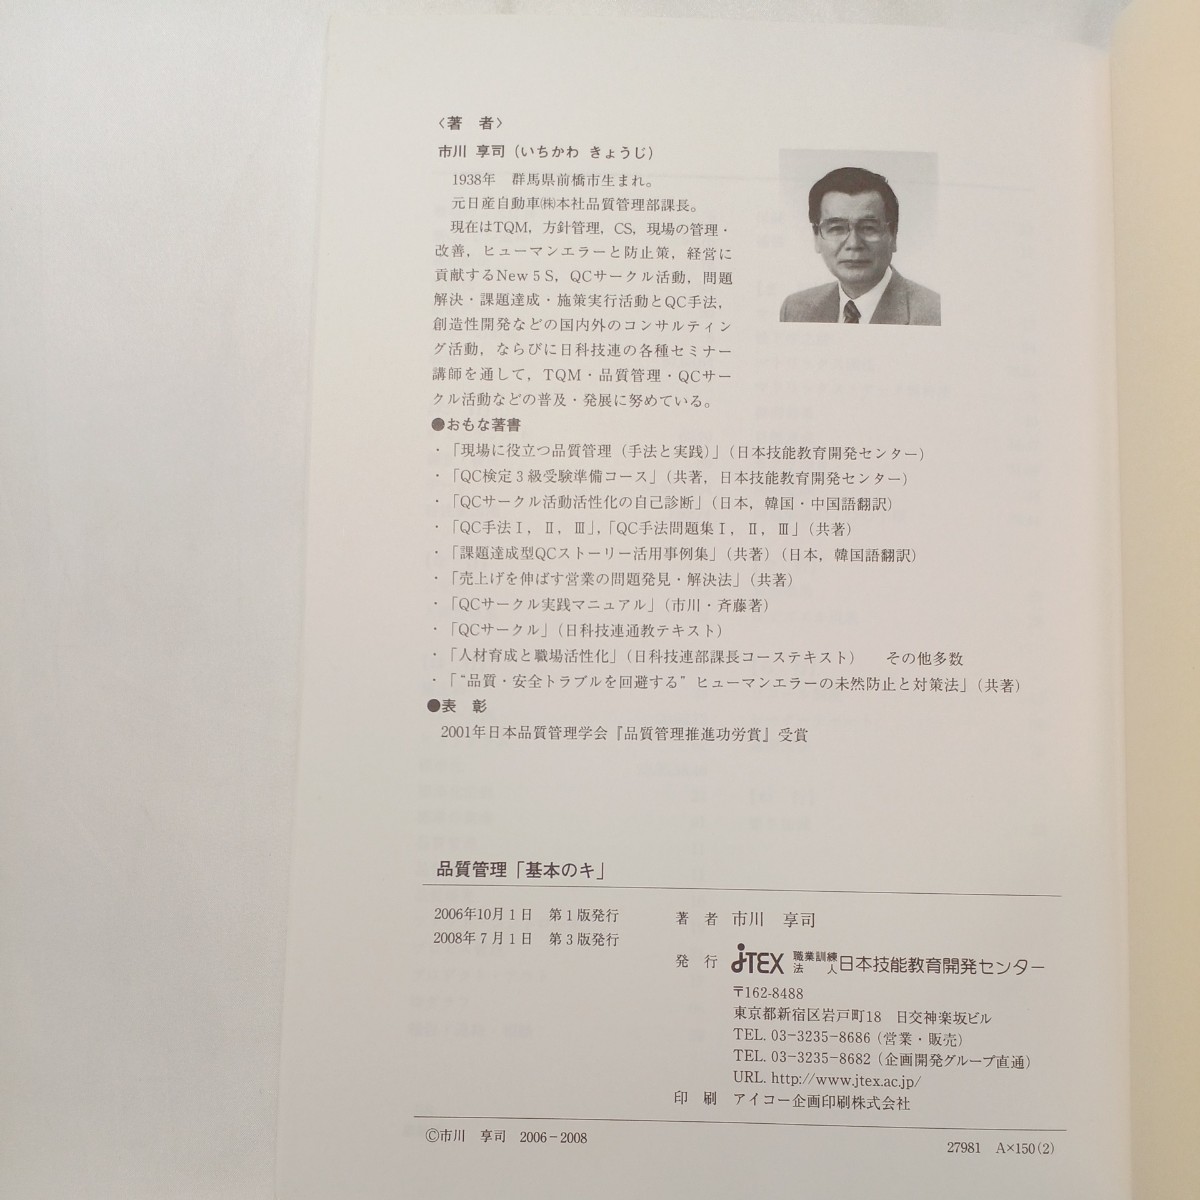 〈著　者〉
市川 享司（いちかわ きょうじ）
1938年　群馬県前橋市生まれ。
元日産自動車㈱本社品質管理部課長。
現在はTQM，方針管理，CS，現場の管理・
改善，ヒューマンエラーと防止策，経営に
貢献するNew５S，QCサークル活動，問題
解決・課題達成・施策実行活動とQC手法，
創造性開発などの国内外のコンサルティン
グ活動，ならびに日科技連の各種セミナー
講師を通して，TQM・品質管理・QCサー
クル活動などの普及・発展に努めている。
●おもな著書
・「現場に役立つ品質管理（手法と実践）」（日本技能教育開発センター）
・「QC検定３級受験準備コース」（共著，日本技能教育開発センター）
・「QCサークル活動活性化の自己診断」（日本，韓国・中国語翻訳）
・「QC手法Ⅰ，Ⅱ，Ⅲ」，「QC手法問題集Ⅰ，Ⅱ，Ⅲ」（共著）
・「課題達成型QCストーリー活用事例集」（共著）（日本，韓国語翻訳）
・「売上げを伸ばす営業の問題発見・解決法」（共著）
・「QCサークル実践マニュアル」（市川・斉藤著）
・「QCサークル」（日科技連通教テキスト）
・「人材育成と職場活性化」（日科技連部課長コーステキスト）　その他多数
・「“品質・安全トラブルを回避する” ヒューマンエラーの未然防止と対策法」（共著）
●表　彰
2001年日本品質管理学会『品質管理推進功労賞』受賞
品質管理「基本のキ」
2006年10月１日　第１版発行
2008年７月１日　第３版発行
著　者　市川　享司
発　行　JTEX 職業訓練法人 日本技能教育開発センター
〒162-8488
東京都新宿区岩戸町18　日交神楽坂ビル
TEL. 03-3235-8686（営業・販売）
TEL. 03-3235-8682（企画開発グループ直通）
URL. http://www.jtex.ac.jp/
印　刷　アイコー企画印刷株式会社
©市川　享司　2006－2008
27981　A×150(2)